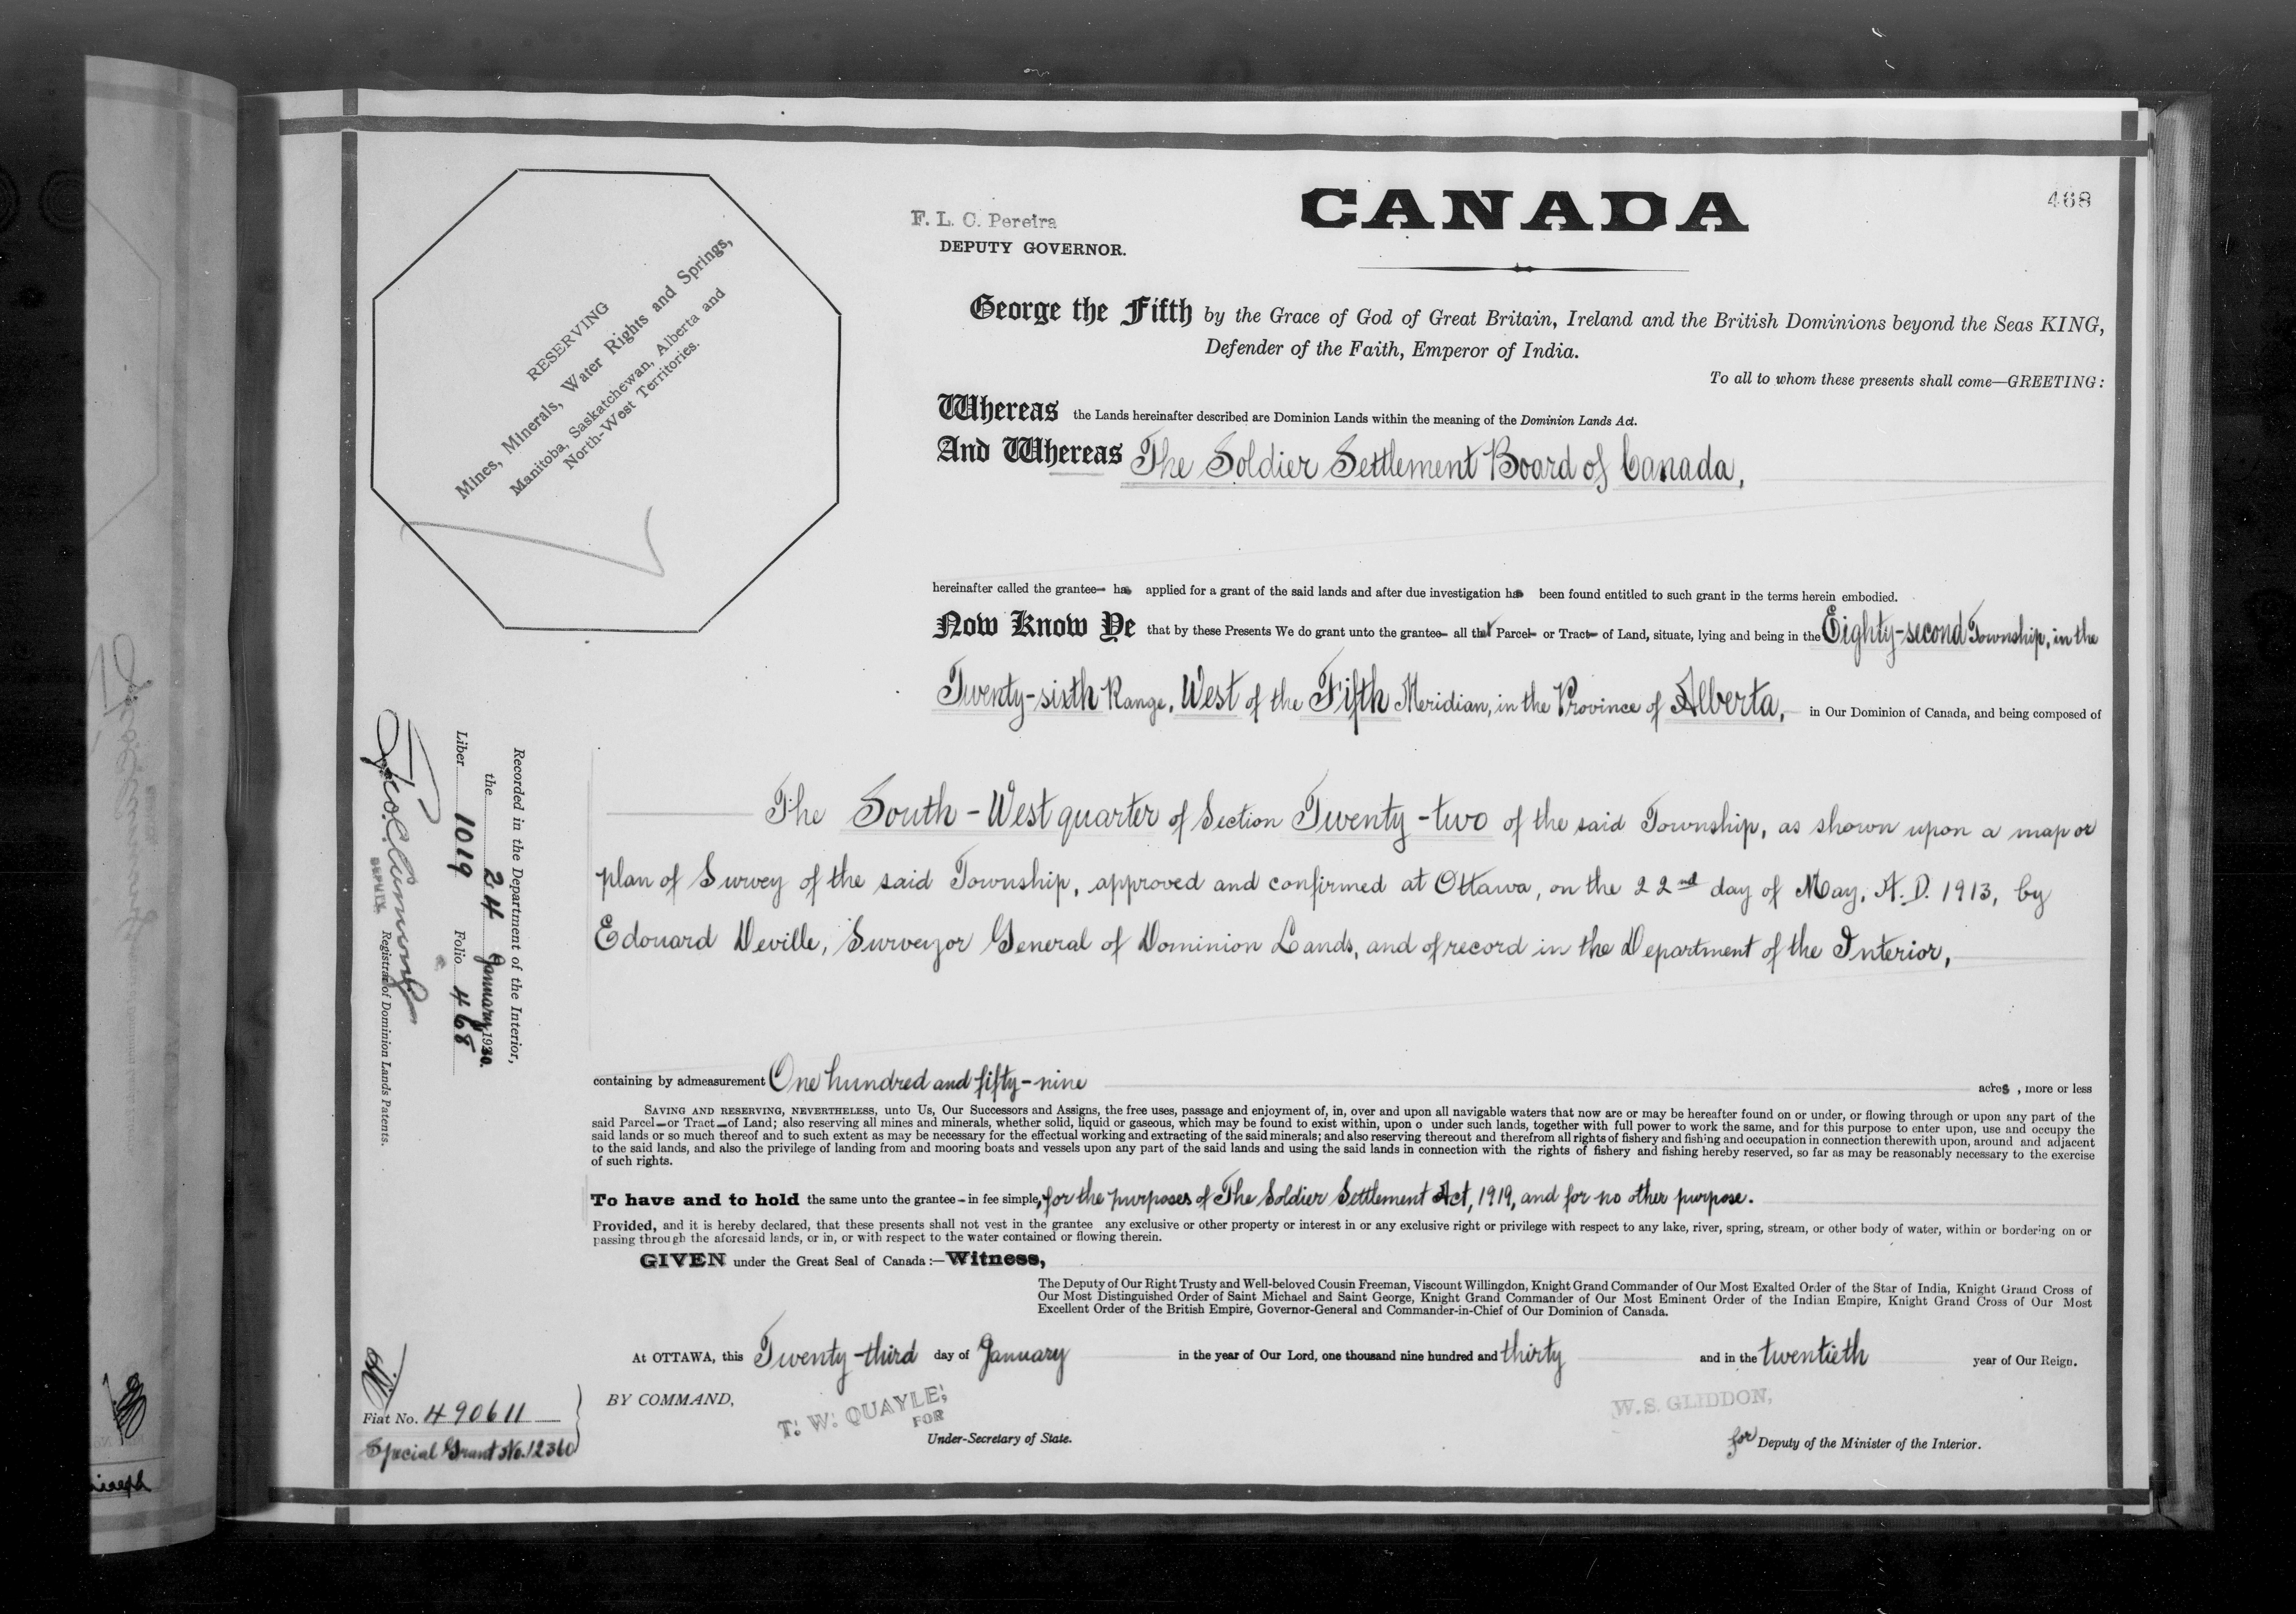 468
CANADA
F. L. C. Pereira
DEPUTY GOVERNOR.
RESERVING
Mines, Minerals, Water Rights and Springs,
Manitoba, Saskatchewan, Alberta and
North-West Territories.
George the Fifth by the Grace of God of Great Britain, Ireland and the British Dominions beyond the Seas KING,
Defender of the Faith, Emperor of India.
To all to whom these presents shall come—GREETING:
Whereas the Lands hereinafter described are Dominion Lands within the meaning of the Dominion Lands Act.
And Whereas The Soldier Settlement Board of Canada,
hereinafter called the grantee- has applied for a grant of the said lands and after due investigation has been found entitled to such grant in the terms herein embodied.
Now Know Ye that by these Presents We do grant unto the grantee- all that Parcel- or Tract- of Land, situate, lying and being in the Eighty-second Township, in the
Twenty-sixth Range, West of the Fifth Meridian, in the Province of Alberta, in Our Dominion of Canada, and being composed of
The South-West quarter of Section Twenty-two of the said Township, as shown upon a map or
plan of Survey of the said Township, approved and confirmed at Ottawa, on the 22nd day of May, A.D. 1913, by
Edouard Deville, Surveyor General of Dominion Lands, and of record in the Department of the Interior,
containing by admeasurement One hundred and fifty-nine acres, more or less
SAVING AND RESERVING, NEVERTHELESS, unto Us, Our Successors and Assigns, the free uses, passage and enjoyment of, in, over and upon all navigable waters that now are or may be hereafter found on or under, or flowing through or upon any part of the
said Parcel—or Tract—of Land; also reserving all mines and minerals, whether solid, liquid or gaseous, which may be found to exist within, upon o under such lands, together with full power to work the same, and for this purpose to enter upon, use and occupy the
said lands or so much thereof and to such extent as may be necessary for the effectual working and extracting of the said minerals; and also reserving thereout and therefrom all rights of fishery and fishing and occupation in connection therewith upon, around and adjacent
to the said lands, and also the privilege of landing from and mooring boats and vessels upon any part of the said lands and using the said lands in connection with the rights of fishery and fishing hereby reserved, so far as may be reasonably necessary to the exercise
of such rights.
To have and to hold the same unto the grantee- in fee simple, for the purposes of The Soldier Settlement Act, 1919, and for no other purpose.
Provided, and it is hereby declared, that these presents shall not vest in the grantee any exclusive or other property or interest in or any exclusive right or privilege with respect to any lake, river, spring, stream, or other body of water, within or bordering on or
passing through the aforesaid lands, or in, or with respect to the water contained or flowing therein.
GIVEN under the Great Seal of Canada:—Witness,
The Deputy of Our Right Trusty and Well-beloved Cousin Freeman, Viscount Willingdon, Knight Grand Commander of Our Most Exalted Order of the Star of India, Knight Grand Cross of
Our Most Distinguished Order of Saint Michael and Saint George, Knight Grand Commander of Our Most Eminent Order of the Indian Empire, Knight Grand Cross of Our Most
Excellent Order of the British Empire, Governor-General and Commander-in-Chief of Our Dominion of Canada.
At OTTAWA, this Twenty-third day of January in the year of Our Lord, one thousand nine hundred and thirty and in the twentieth year of Our Reign.
BY COMMAND,
T. W. QUAYLE,
FOR
Under-Secretary of State.
W. S. GLIDDON,
for Deputy of the Minister of the Interior.
Recorded in the Department of the Interior,
the 24 January 1930.
Liber 1019 Folio 468
DEPUTY
Registrar of Dominion Lands Patents.
Fiat No. 490611
Special Grant No. 12360